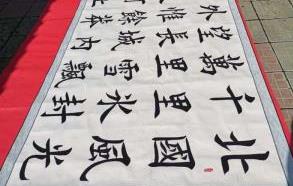 北國風光
千里冰封
萬里雪飄
望長城內
外惟餘莽